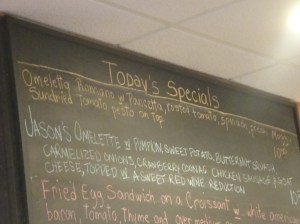 Today's Specials
Omeletta Romano w pancetta, roasted tomato, spinach, fresh Mozz
Sundried Tomato pesto on top
JASON'S OMELETTE w PUMPKIN, SWEET POTATO, BUTTERNUT SQUASH
CARMELIZED ONIONS, CRANBERRY CHICKEN SAUSAGE & GOAT
CHEESE, TOPPED w A SWEET RED WINE REDUCTION
Fried Egg Sandwich on a Croissant w white american
bacon, Tomato, Thyme and